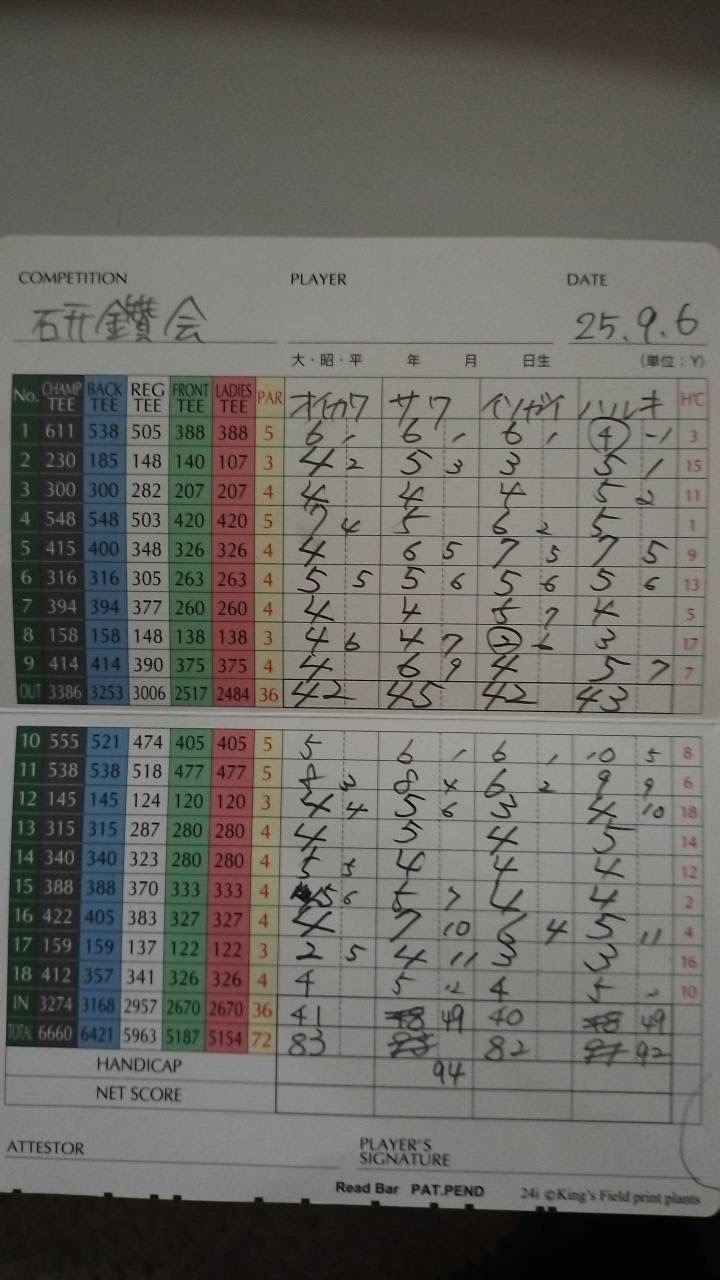 COMPETITION PLAYER DATE
研鑽会 25.9.6
大・昭・平 年 月 日生 (単位：Y)
No. CHAMP TEE BACK TEE REG TEE FRONT TEE LADIES TEE PAR オイカワ サワ イソガイ ハルキ H'C
1 611 538 505 388 388 5 6 1 6 1 6 1 4 -1 3
2 230 185 148 140 107 3 4 2 5 3 3 5 1 15
3 300 300 282 207 207 4 4 4 4 5 2 11
4 548 548 503 420 420 5 7 4 5 6 2 5 1
5 415 400 348 326 326 4 4 6 5 7 5 7 5 9
6 316 316 305 263 263 4 5 5 5 6 5 6 5 6 13
7 394 394 377 260 260 4 4 4 5 7 4 5
8 158 158 148 138 138 3 4 6 4 7 2 6 3 17
9 414 414 390 375 375 4 4 6 9 4 5 7 7
OUT 3386 3253 3006 2517 2484 36 42 45 42 43
10 555 521 474 405 405 5 5 6 1 6 1 10 5 8
11 538 538 518 477 477 5 8 3 8 4 6 2 9 9 6
12 145 145 124 120 120 3 4 4 5 6 3 4 10 18
13 315 315 287 280 280 4 4 5 4 5 14
14 340 340 323 280 280 4 5 5 4 4 4 12
15 388 388 370 333 333 4 5 6 5 7 4 4 2
16 422 405 383 327 327 4 4 7 10 6 4 5 11 4
17 159 159 137 122 122 3 2 5 4 11 3 3 16
18 412 357 341 326 326 4 4 5 12 4 5 10
IN 3274 3168 2957 2670 2670 36 41 48 49 40 48 49
TOTAL 6660 6421 5963 5187 5154 72 83 82 92
HANDICAP 94
NET SCORE
ATTESTOR PLAYER'S SIGNATURE
Read Bar PAT.PEND 24i ©King's Field print plants